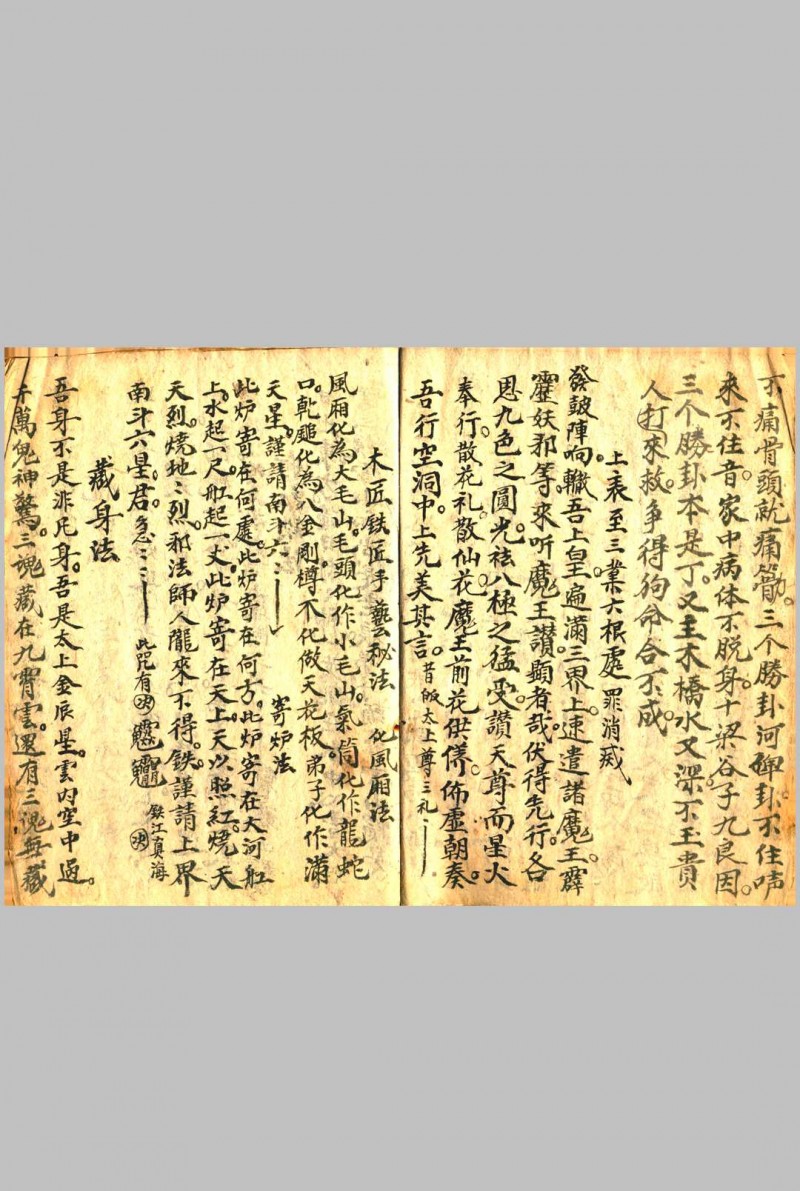 不痛骨頭就痛觔。三个勝卦河婢卦不住声
來不住音。家中病体不脱身。十梁谷子九良因。
三个勝卦本是丁。又主木橋水又深。不王貴
人打來救。争得狗命合不成。
上表至三業六根處 罪消滅
發鼓陣响轍。吾上皇遍滿三界上。速遣諸魔王。霹
靂妖邪等。來听魔王讚。顕者哉。伏得先行。各
恩九色之圓。光祛八極之猛。受讚天尊而星火
奉行。散花礼。散仙花。魔王前花供儀。佈虛朝奏。
吾行空洞中。上先美其言。昔皈太上尊三礼
木匠鉄匠手藝秘法 化風廂法
風廂化為大毛山。毛頭化作小毛山。氣筒化作龍蛇
口。乾䭔化為八金剛。樽不化做天花板。弟子化作滿
天星。謹請南斗六 寄炉法
此炉寄在何處。此炉寄在何方。此炉寄在大河舡
上。水起一尺。舡起一丈。此炉寄在天上。天以照紅。燒天
天烈。燒地地烈。邪法師人隴來不得。鉄謹請上界
南斗六星。君。急 此咒有 鉄江真海
藏身法
吾身不是非凡身。吾是太上金辰星。雲内空中過。
千萬鬼神驚。三魂藏在九霄雲。還有三魂無藏